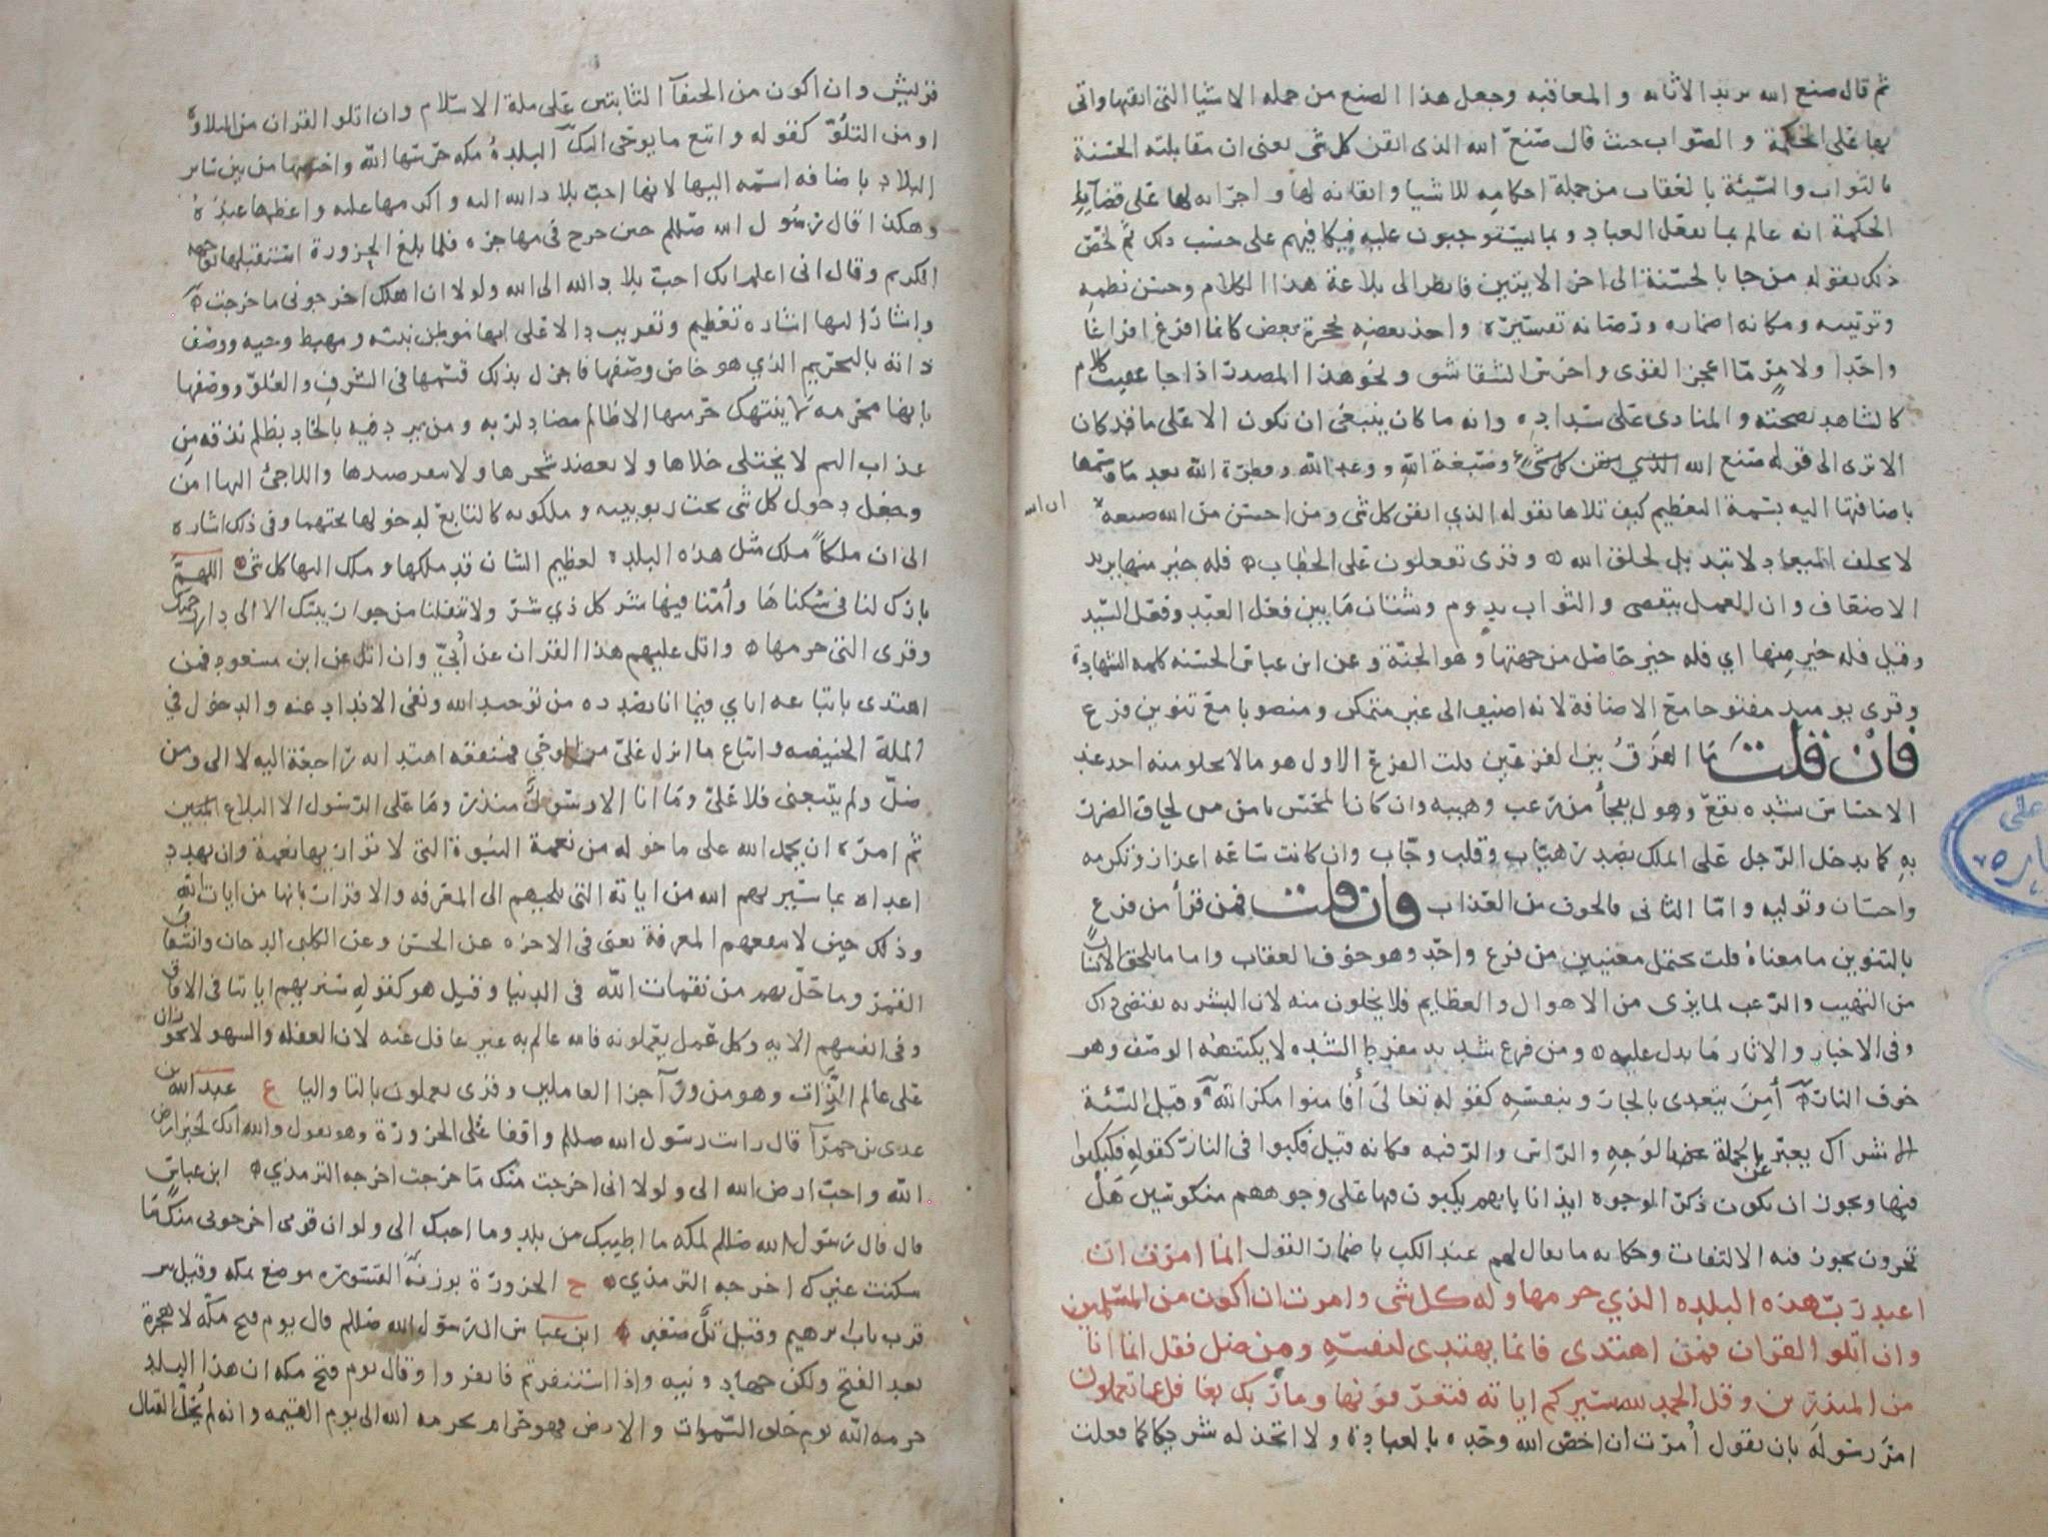 ثم قال صنع الله يريد الاثابه والمعاقبه وجعل هذا الصنع من جمله الاشيا التي اتقنها واتى
بها على الحكمة والصواب حيث قال صنع الله الذى اتقن كل شى يعنى ان مقابلته الحسنة
بالثواب والسيئة بالعقاب من جملة احكامه للاشيا واتقانه لها واجرائه لها على قضايا
الحكمة انه عالم بما يفعل العباد وبما يستوجبون عليه فيكافيهم على حسب ذلك ثم لخص
ذلك بقوله من جا بالحسنة الى اخر الايتين فانظر الى بلاغة هذا الكلام وحسن نظمه
وترتيبه ومكانه اضماده ورصانه تفسيره واخذ بعضه بحجزة بعض كانما افرغ افراغا
واحدا ولامر ما اعجز القوى واخرس الشقاشق ونحو هذا المصدر اذا جا عقيب كلام
كالشاهد بصحته والمنادى على سداده وانه ما كان ينبغى ان يكون الا على ما قد كان
الا ترى الى قوله صنع الله وصبغة الله ووعد الله وفطرة الله بعد ما وسمها
باضافتها اليه بسمة التعظيم كيف تلاها بقوله الذي اتقن كل شى ومن احسن من الله صبغه
لا يخلف الميعاد لا تبديل لخلق الله وقرى تفعلون على الخطاب فله خير منها يريد
الاضعاف وان العمل يتقضى والثواب يدوم وشتان ما بين فعل العبد وفعل السيد
وقيل فله خير منها اي فله خير حاصل من جهتها وهو الجنة وعن ابن عباس الحسنه كلمه الشهادة
وقرى يومئذ مفتوحا مع الاضافة لانه اضيف الى غير متمكن ومنصوبا مع تنوين فزع
فان قلت ما الفرق بين الفزعين قلت الفزع الاول هو ما لا يخلو منه احد عند
الاحساس بشده تقع وهول يفجأ من رعب وهيبه وان كان المحسن يامن من لحاق الضرر
به كما يدخل الرجل على الملك بصدر هياب وقلب وجاب وان كانت ساعه اعزاز وتكرمه
واحسان وتوليه واما الثاني فالخوف من العذاب فان قلت فمن قرأ من فزع
بالتنوين ما معناه قلت يحتمل معنيين من فزع واحد وهو خوف العقاب واما ما يلحق الانسان
من التهيب والرعب لما يرى من الاهوال والعظايم فلا يخلون منه لان البشريه تقتضى ذلك
وفى الاخبار والاثار ما يدل عليه ومن فزع شديد مفرط الشده لا يكتنهه الوصف وهو
خوف النار أمن يتعدى بالجار وبنفسه كقوله تعالى أفامنوا مكر الله وقيل السيئة
الشرك يعبر عن الجملة بالوجه والراس والرقبه فكانه قيل فكبوا فى النار كقوله فكبكبوا
فيها ويجوز ان يكون ذكر الوجوه ايذانا بانهم يكبون فيها على وجوههم منكوسين هل
تجزون يجوز فيه الالتفات وحكايه ما يقال لهم عند الكب باضمار القول انما امرت ان
اعبد رب هذه البلده الذي حرمها وله كل شى وامرت ان اكون من المسلمين
وان اتلو القران فمن اهتدى فانما يهتدى لنفسه ومن ضل فقل انما انا
من المنذرين وقل الحمد لله سيريكم اياته فتعرفونها وما ربك بغافل عما تعملون
امر رسوله بان يقول أمرت ان اخص الله وحده بالعبادة ولا اتخذ له شريكا كما فعلت
قريش وان اكون من الحنفآ الثابتين على ملة الاسلام وان اتلو القران من التلاوه
او من التلو كقوله واتبع ما يوحى اليك البلدة مكه حرسها الله واختصها من بين ساير
البلاد باضافه اسمه اليها لانها احب بلاد الله اليه واكرمها عليه واعظمها عنده
وهكذا قال رسول الله صللم حين خرج فى مهاجره فلما بلغ الحزورة استقبلها بوجهه
الكريم وقال انى اعلم انك احب بلاد الله الى الله ولولا ان اهلك اخرجونى ما خرجت
واشار اليها اشاره تعظيم وتقريب دالا على انها موطن نبيه ومهبط وحيه ووصف
ذاته بالتحريم الذي هو خاص وصفها فاجزل بذلك قسمها فى الشرف والعلو ووصفها
بانها محرمه لا ينتهك حرمتها الا ظالم مضاد لربه ومن يرد فيه بالحاد بظلم نذقه من
عذاب اليم لا يختلى خلاها ولا يعضد شجرها ولا ينفر صيدها واللاجئ اليها امن
وجعل دخول كل شى تحت ربوبيته وملكوته كالتابع لدخولها تحتهما وفى ذلك اشاره
الى ان ملكا ملك مثل هذه البلده لعظيم الشان قد ملكها وملك اليها كل شى اللهم
بارك لنا فى سكناها وأمنا فيها شر كل ذي شر ولا تنقلنا من جوار بيتك الا الى دار رحمتك
وقرى التى حرمها واتل عليهم هذا القران عن أبيّ وان اتل عن ابن مسعود فمن
اهتدى باتباعه اياي فيما انا بصدده من توحيد الله ونفى الانداد عنه والدخول في
الملة الحنيفيه واتباع ما انزل علىّ من الوحي فمنفعه اهتدائه راجعة اليه لا الى ومن
ضلّ ولم يتبعنى فلا علىّ وما انا الا رسول منذر وما على الرسول الا البلاغ المبين
ثم امره ان يحمد الله على ما خوله من نعمة النبوة التى لا توازيها نعمة وان يهدد
اعداه بما سيريهم الله من اياته التى تلجيهم الى المعرفه والاقرار بانها من ايات الله
وذلك حين لا تنفعهم المعرفة يعنى فى الاخره عن الحسن وعن الكلبى الدخان وانشقاق
القمر وما حلّ بهم من نقمات الله فى الدنيا وقيل هو كقوله سنريهم اياتنا فى الافاق
وفى انفسهم الايه وكل عمل يعملونه فالله عالم به غير غافل عنه لان الغفله والسهو لا يجوزان
على عالم الذات وهو من ورآ جزا العاملين وقرى يعملون باليا والتا ع عبد الله بن
عدى بن حمرآ قال رايت رسول الله صللم واقفا على الحزورة وهو يقول والله انك لخير ارض
الله واحب ارض الله الى ولولا انى اخرجت منك ما خرجت اخرجه الترمذي ابن عباس
قال قال رسول الله صللم لمكه ما اطيبك من بلد وما احبك الى ولو ان قومى اخرجونى منك ما
سكنت غيرك اخرجه الترمذي ح الحزورة بوزن القسوره موضع بمكه وقيل
قرب باب ابرهيم وقيل تلّ صغير ابن عباس ان رسول الله صللم قال يوم فتح مكه لا هجرة
بعد الفتح ولكن جهاد ونيه واذا استنفرتم فانفروا وقال يوم فتح مكه ان هذا البلد
حرمه الله يوم خلق السموات والارض فهو حرام بحرمه الله الى يوم القيمه وانه لم يحل القتال